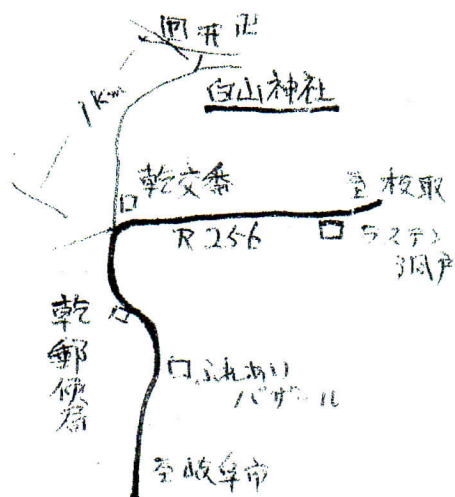 洞井卍
1Km
白山神社
乾交番
至板取
R256
ラステン
洞戸
乾郵便局
ふれあい
バザール
至岐阜市